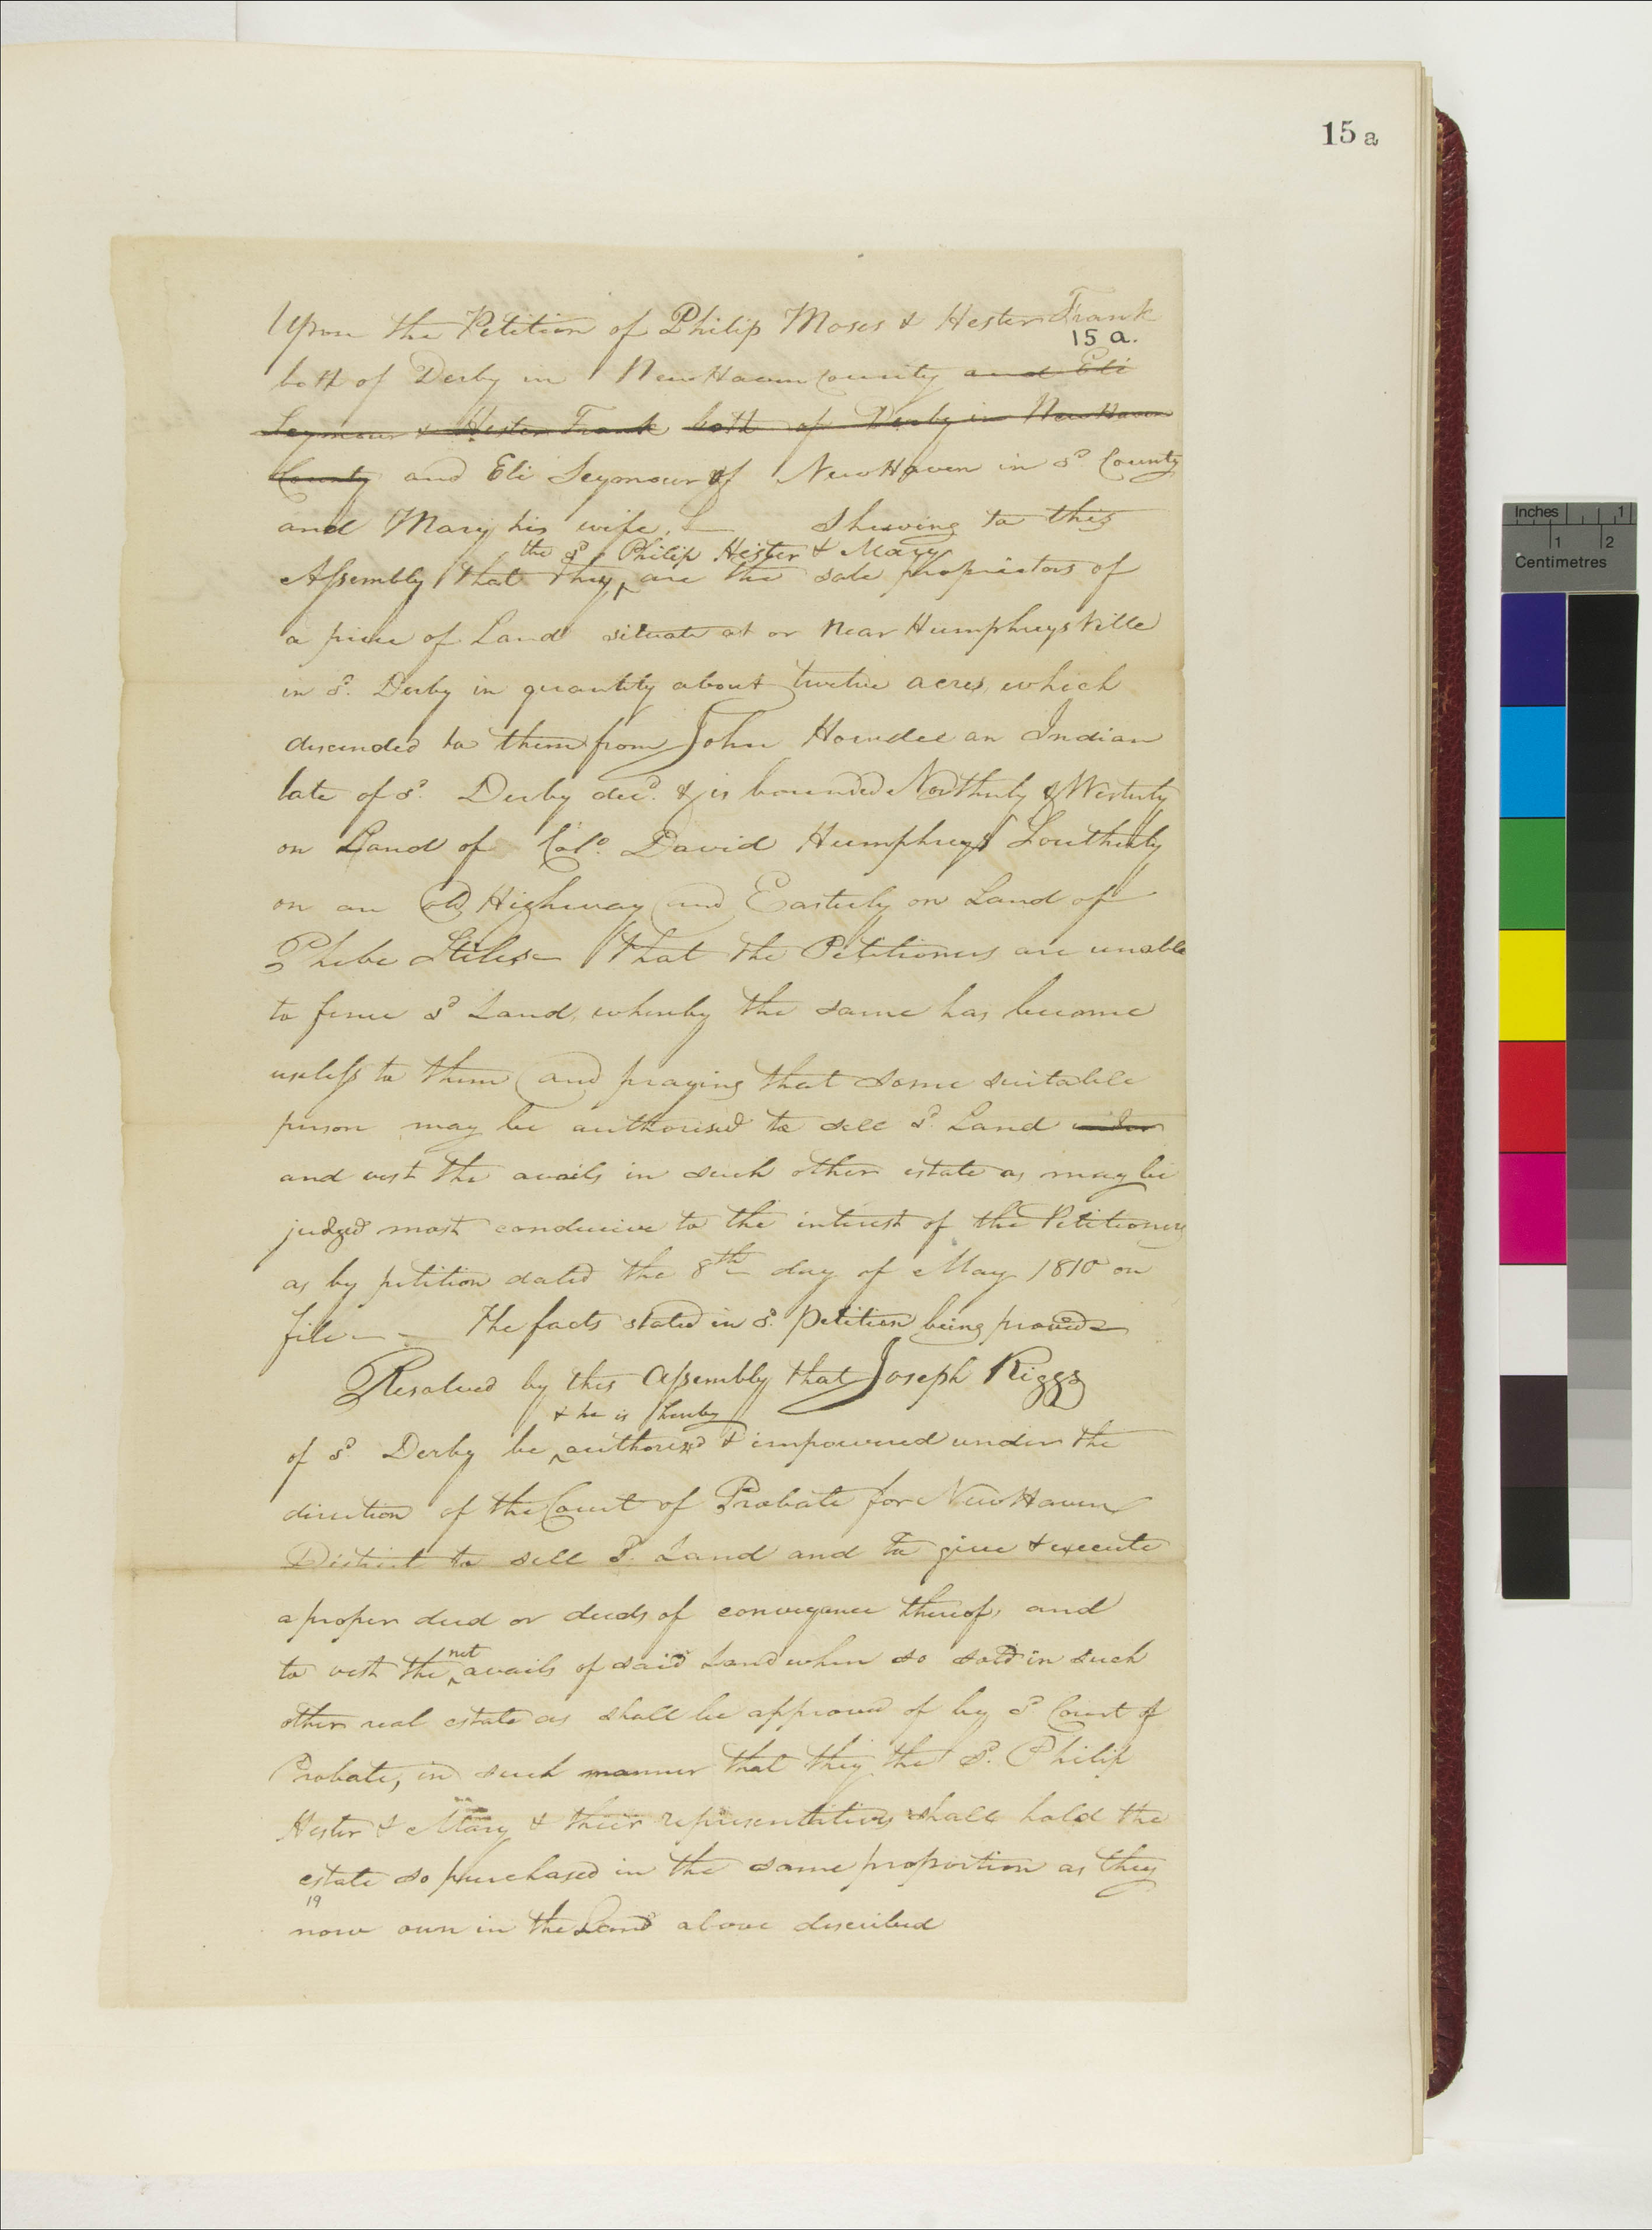 15 a
Upon the Petition of Philip Moses & Hester Frank
15 a.
both of Derby in New Haven County and Eli
Seymour & Hester Frank both of Derby in New Haven
County and Eli Seymour of New Haven in sd County
and Mary his wife, Shewing to this
the sd Philip Hester & Mary
Assembly that they ^ are the sole proprietors of
a piece of Land situate at or near Humphreysville
in sd. Derby in quantity about twelve acres, which
descended to them from John Howdee an Indian
late of sd. Derby decd. & is bounded Northerly & Westerly
on Land of Colo. David Humphreys Southerly
on an old Highway and Easterly on Land of
Phebe Stiles— that the Petitioners are unable
to fence sd Land, whereby the same has become
useless to them and praying that some suitable
person may be authorised to sell sd. Land
and vest the avails in such other estate as may be
judged most conducive to the interest of the Petitioners
as by petition dated the 8th day of May 1810 on
file — The facts stated in sd. petition being proved—
Resolved by this Assembly that Joseph Riggs
& he is hereby
of sd Derby be ^ authorised & impowered under the
direction of the Court of Probate for New Haven
District to sell sd. Land and to give & execute
a proper deed or deeds of conveyance thereof, and
net
to vest the ^ avails of said Land when so sold in such
other real estate as shall be approved of by sd Court of
Probate, in such manner that they the sd. Philip
Hester & Mary & their representatives shall hold the
estate so purchased in the same proportion as they
19
now own in the Land above described
Inches 1
1 2
Centimetres